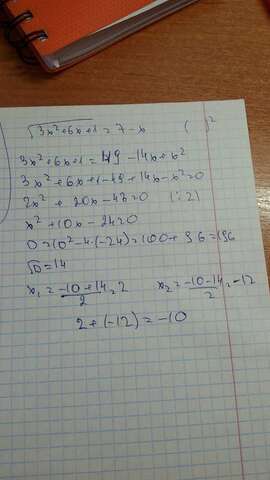 √3x²+6x+1 = 7 - x ( )²
3x²+6x+1 = 49 - 14x + x²
3x²+6x+1-49+14x-x²=0
2x² + 20x - 48=0 (:2)
x² + 10x - 24=0
D=10²-4·(-24)=100+96=196
√D=14
x₁ = -10+14/2 = 2 x₂ = -10-14/2 = -12
2 + (-12) = -10